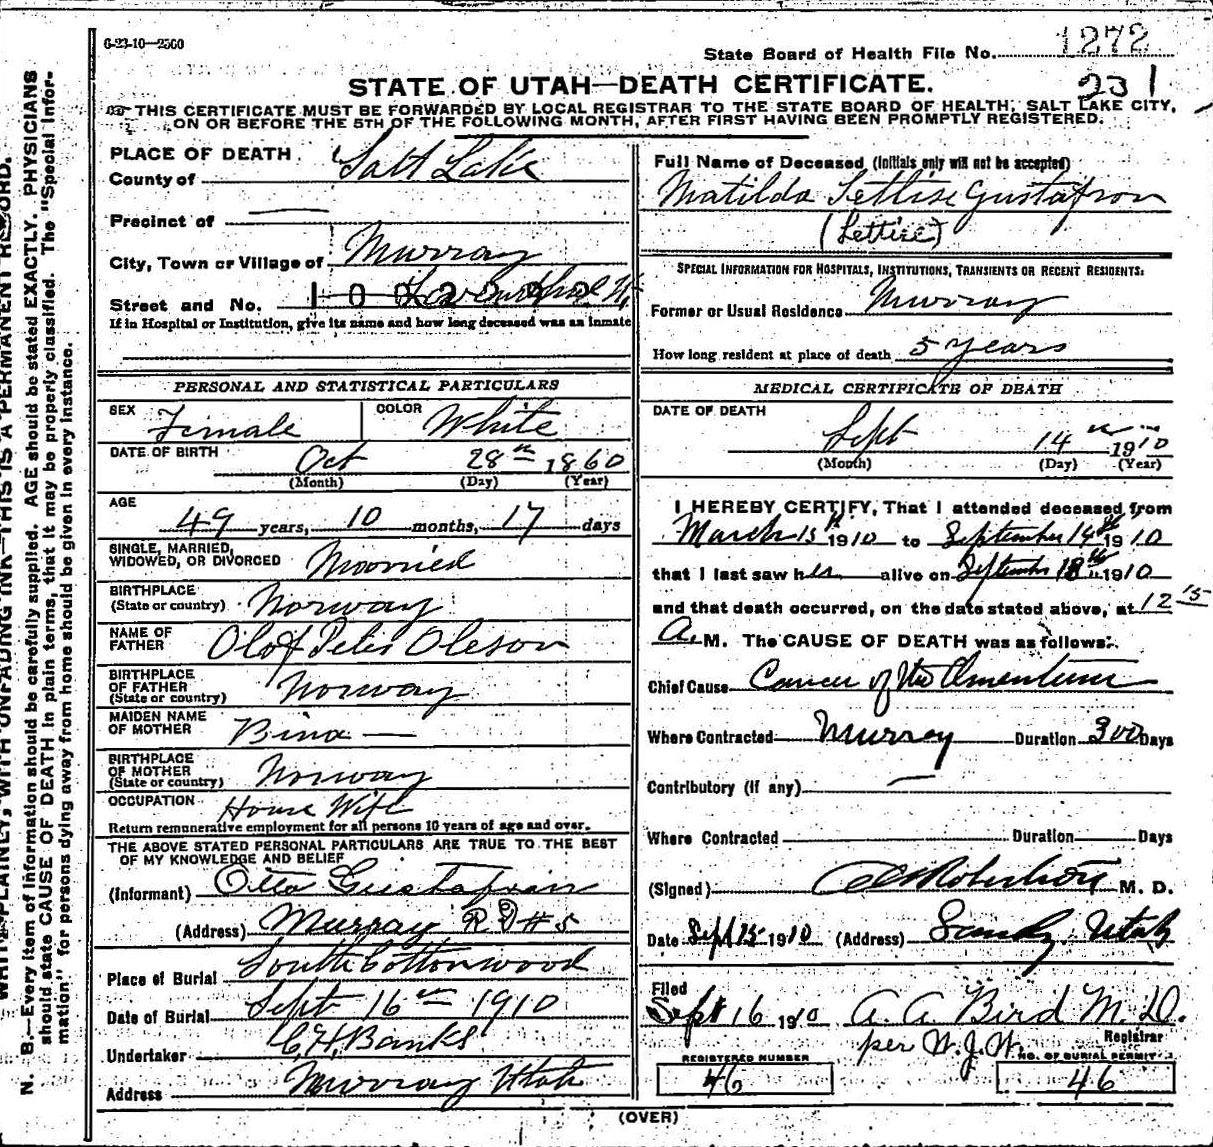 6-23-10—2500
State Board of Health File No. 1272
STATE OF UTAH—DEATH CERTIFICATE. 231
THIS CERTIFICATE MUST BE FORWARDED BY LOCAL REGISTRAR TO THE STATE BOARD OF HEALTH, SALT LAKE CITY,
ON OR BEFORE THE 5TH OF THE FOLLOWING MONTH, AFTER FIRST HAVING BEEN PROMPTLY REGISTERED.
PLACE OF DEATH
County of Salt Lake
Precinct of —
City, Town or Village of Murray
Street and No.
If in Hospital or Institution, give its name and how long deceased was an inmate
PERSONAL AND STATISTICAL PARTICULARS
SEX Female COLOR White
DATE OF BIRTH Oct 28th 1860
(Month) (Day) (Year)
AGE 49 years, 10 months, 17 days
SINGLE, MARRIED,
WIDOWED, OR DIVORCED Married
BIRTHPLACE
(State or country) Norway
NAME OF
FATHER Olof Peter Oleson
BIRTHPLACE
OF FATHER
(State or country) Norway
MAIDEN NAME
OF MOTHER Bina —
BIRTHPLACE
OF MOTHER
(State or country) Norway
OCCUPATION House Wife
Return remunerative employment for all persons 10 years of age and over.
THE ABOVE STATED PERSONAL PARTICULARS ARE TRUE TO THE BEST
OF MY KNOWLEDGE AND BELIEF
(Informant) Otto Gustafson
(Address) Murray R D # 5
Place of Burial South Cottonwood
Date of Burial Sept 16th 1910
Undertaker Banks
Address Murray Utah
Full Name of Deceased (Initials only will not be accepted)
Matilda Letlise Gustafson
(Lettise)
SPECIAL INFORMATION FOR HOSPITALS, INSTITUTIONS, TRANSIENTS OR RECENT RESIDENTS:
Former or Usual Residence Murray
How long resident at place of death 5 years
MEDICAL CERTIFICATE OF DEATH
DATE OF DEATH
Sept 14 1910
(Month) (Day) (Year)
I HEREBY CERTIFY, That I attended deceased from
March 15th 1910 to September 14th 1910
that I last saw her alive on September 1910
and that death occurred, on the date stated above, at 12 15
A. M. The CAUSE OF DEATH was as follows:
Chief Cause Cancer of the Omentum
Where Contracted Murray Duration 300 Days
Contributory (if any) —
Where Contracted Duration Days
(Signed) Robertson M. D.
Date Sept 15 1910 (Address) Sandy Utah
Filed
Sept 16 1910 A. A. Bird M. D.
Registrar
per W. J. W.
REGISTERED NUMBER NO. OF BURIAL PERMIT
46 46
(OVER)
N. B.—Every item of information should be carefully supplied. AGE should be stated EXACTLY. PHYSICIANS
should state CAUSE OF DEATH in plain terms, that it may be properly classified. The "Special Infor-
mation" for persons dying away from home should be given in every instance.